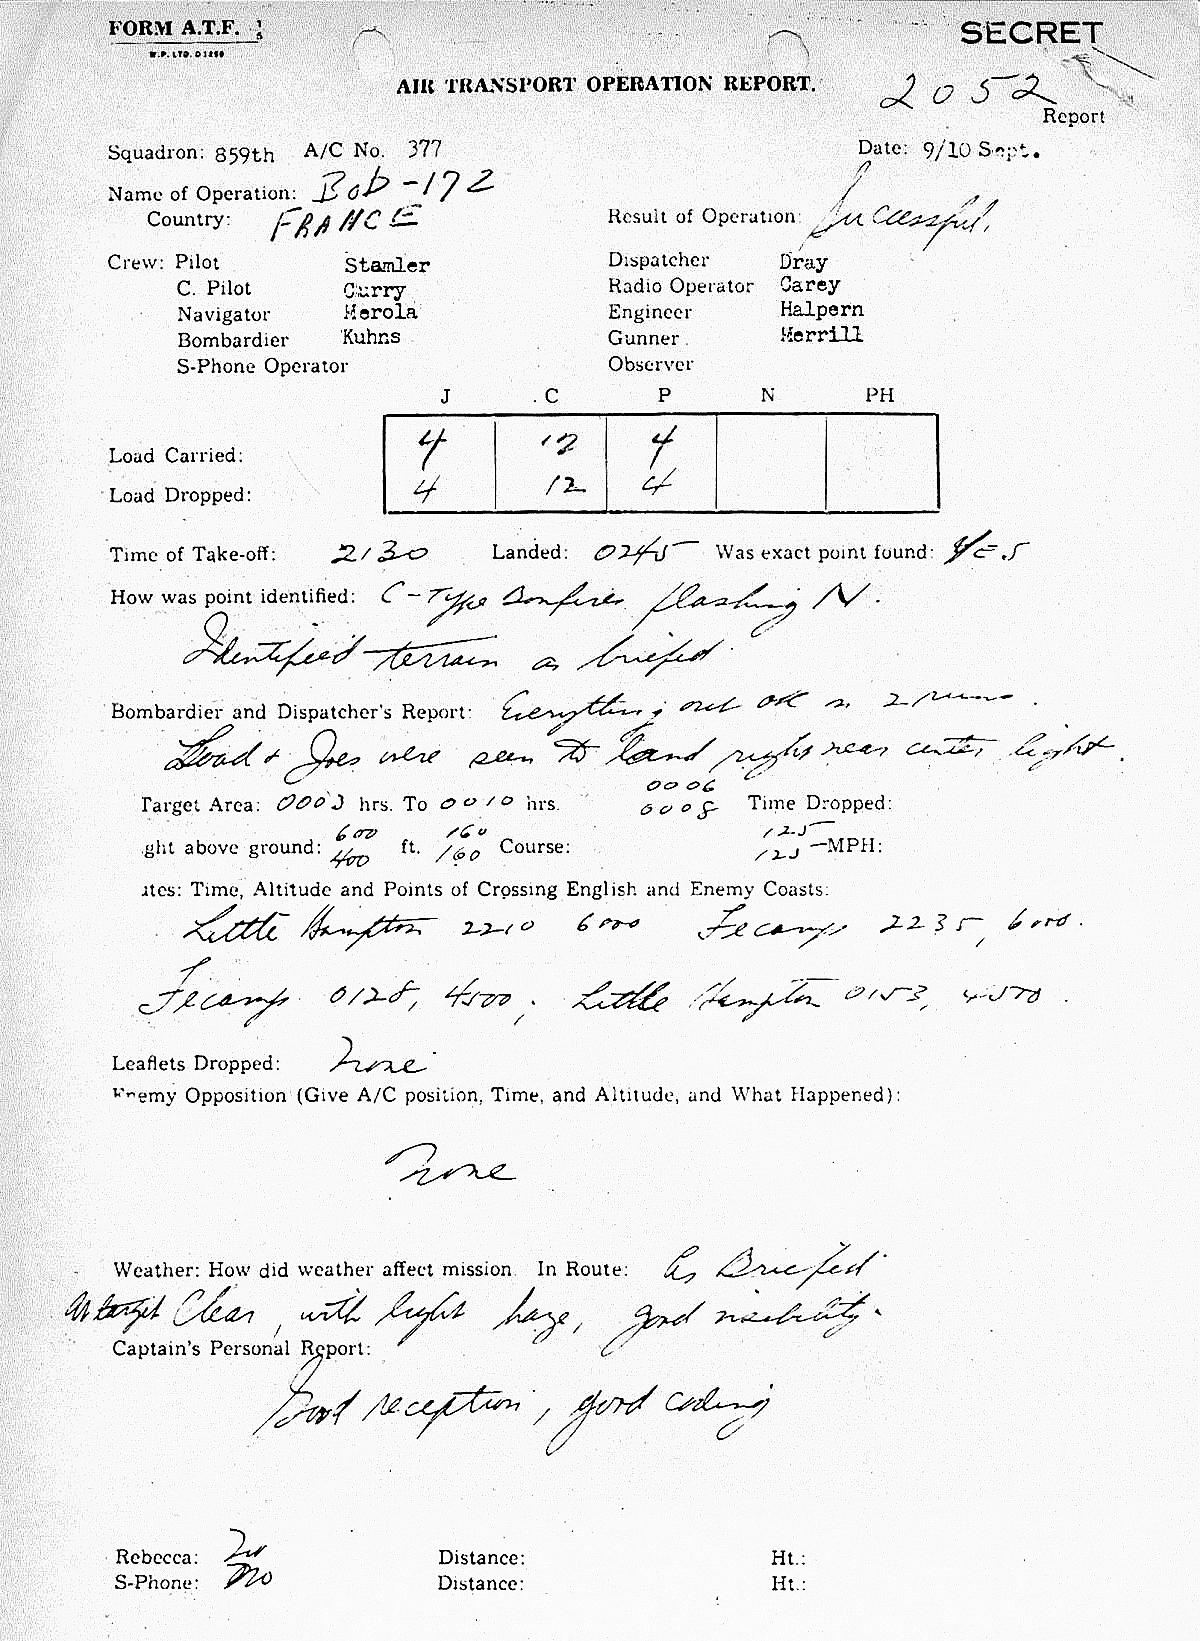 FORM A.T.F.
W.P. LTD. D1250
SECRET
AIR TRANSPORT OPERATION REPORT.
2052
Report
Squadron: 859th A/C No. 377 Date: 9/10 Sept.
Name of Operation: Bob-172
Country: FRANCE Result of Operation: Successful.
Crew: Pilot Stamler Dispatcher Dray
C. Pilot Curry Radio Operator Carey
Navigator Merola Engineer Halpern
Bombardier Kuhns Gunner Merrill
S-Phone Operator Observer
J C P N PH
Load Carried: 4 12 4
Load Dropped: 4 12 4
Time of Take-off: 2130 Landed: 0245 Was exact point found: YES
How was point identified: C-Type Bonfires flashing N.
Identified terrain as briefed.
Bombardier and Dispatcher's Report: Everything out OK in 2 runs.
Load & Joes were seen to land right near center light.
0006
Target Area: 0003 hrs. To 0010 hrs. 0008 Time Dropped:
600 160 125
ght above ground: 400 ft. 160 Course: 125 -MPH:
ites: Time, Altitude and Points of Crossing English and Enemy Coasts:
Little Hampton 2210 6000 Fecamp 2235, 6000.
Fecamp 0128, 4500; Little Hampton 0153, 4500.
Leaflets Dropped: None
Enemy Opposition (Give A/C position, Time, and Altitude, and What Happened):
None
Weather: How did weather affect mission. In Route: As Briefed
At target Clear, with light haze, good visibility.
Captain's Personal Report:
Good reception, good coding
Rebecca: No Distance: Ht.:
S-Phone: No Distance: Ht.: